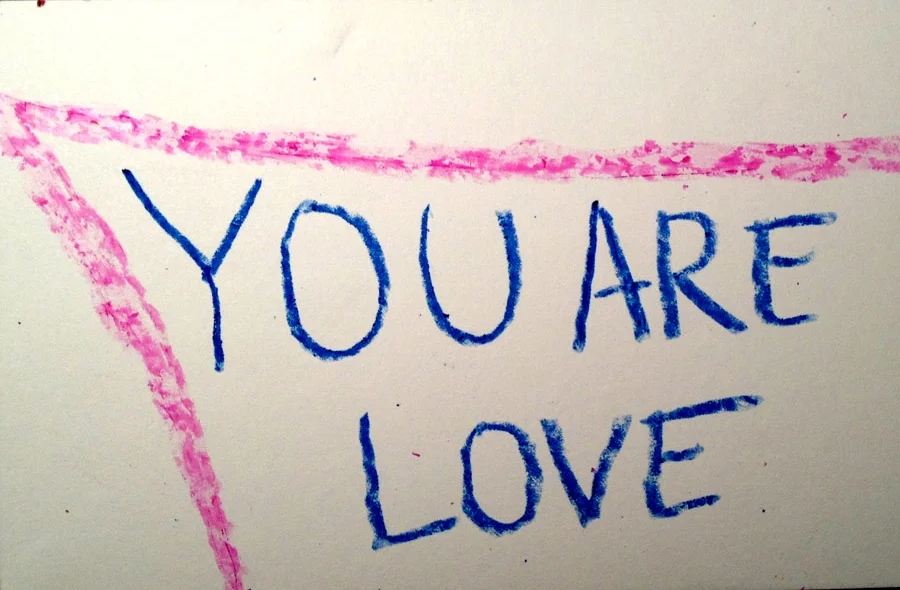 YOU ARE
LOVE